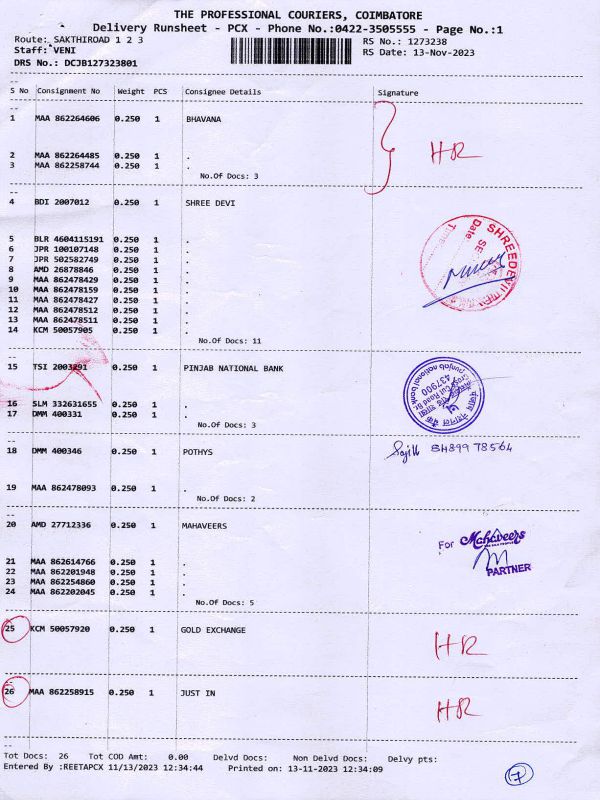 THE PROFESSIONAL COURIERS, COIMBATORE
Delivery Runsheet - PCX - Phone No.:0422-3505555 - Page No.:1
Route: SAKTHIROAD 1 2 3 RS No.: 1273238
Staff: VENI RS Date: 13-Nov-2023
DRS No.: DCJB127323801
S No Consignment No Weight PCS Consignee Details Signature
1 MAA 862264606 0.250 1 BHAVANA
HR
2 MAA 862264485 0.250 1 .
3 MAA 862258744 0.250 1 .
No.Of Docs: 3
4 BDI 2007012 0.250 1 SHREE DEVI
SHREEDEVI
Date
5 BLR 4604115191 0.250 1 .
6 JPR 100107148 0.250 1 .
7 JPR 502582749 0.250 1 .
8 AMD 26878846 0.250 1 .
9 MAA 862478429 0.250 1 .
10 MAA 862478159 0.250 1 .
11 MAA 862478427 0.250 1 .
12 MAA 862478512 0.250 1 .
13 MAA 862478511 0.250 1 .
14 KCM 50057905 0.250 1 .
No.Of Docs: 11
15 TSI 2003291 0.250 1 PINJAB NATIONAL BANK
punjab national bank
437900
Cross Cut Road Br.
16 SLM 332631655 0.250 1 .
17 DMM 400331 0.250 1 .
No.Of Docs: 3
18 DMM 400346 0.250 1 POTHYS
19 MAA 862478093 0.250 1 .
No.Of Docs: 2
20 AMD 27712336 0.250 1 MAHAVEERS
For Mahaveers
PARTNER
21 MAA 862614766 0.250 1 .
22 MAA 862201948 0.250 1 .
23 MAA 862254860 0.250 1 .
24 MAA 862202045 0.250 1 .
No.Of Docs: 5
25 KCM 50057920 0.250 1 GOLD EXCHANGE
HR
26 MAA 862258915 0.250 1 JUST IN
HR
Tot Docs: 26 Tot COD Amt: 0.00 Delvd Docs: Non Delvd Docs: Delvy pts:
Entered By :REETAPCX 11/13/2023 12:34:44 Printed on: 13-11-2023 12:34:09
7